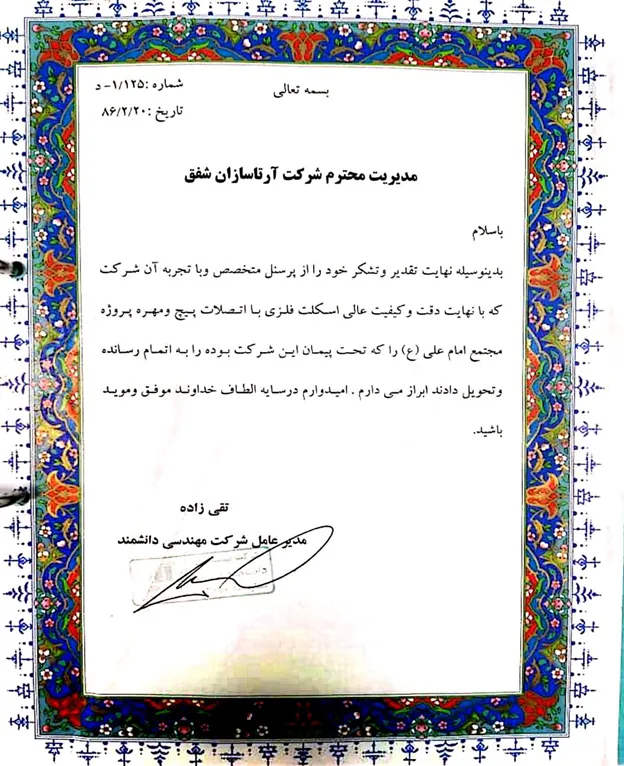 بسمه تعالی
شماره :۱/۱۲۵- د
تاریخ :۸۶/۲/۲۰
مدیریت محترم شرکت آرتاسازان شفق
باسلام
بدینوسیله نهایت تقدیر وتشکر خود را از پرسنل متخصص وبا تجربه آن شرکت
که با نهایت دقت وکیفیت عالی اسکلت فلزی با اتصلات پیچ ومهره پروژه
مجتمع امام علی (ع) را که تحت پیمان این شرکت بوده را به اتمام رسانده
وتحویل دادند ابراز می دارم . امیدوارم درسایه الطاف خداوند موفق وموید
باشید.
تقی زاده
مدیر عامل شرکت مهندسی دانشمند